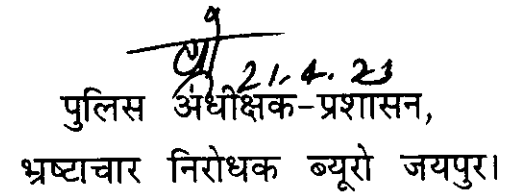 21.4.23
पुलिस अधीक्षक-प्रशासन,
भ्रष्टाचार निरोधक ब्यूरो जयपुर।